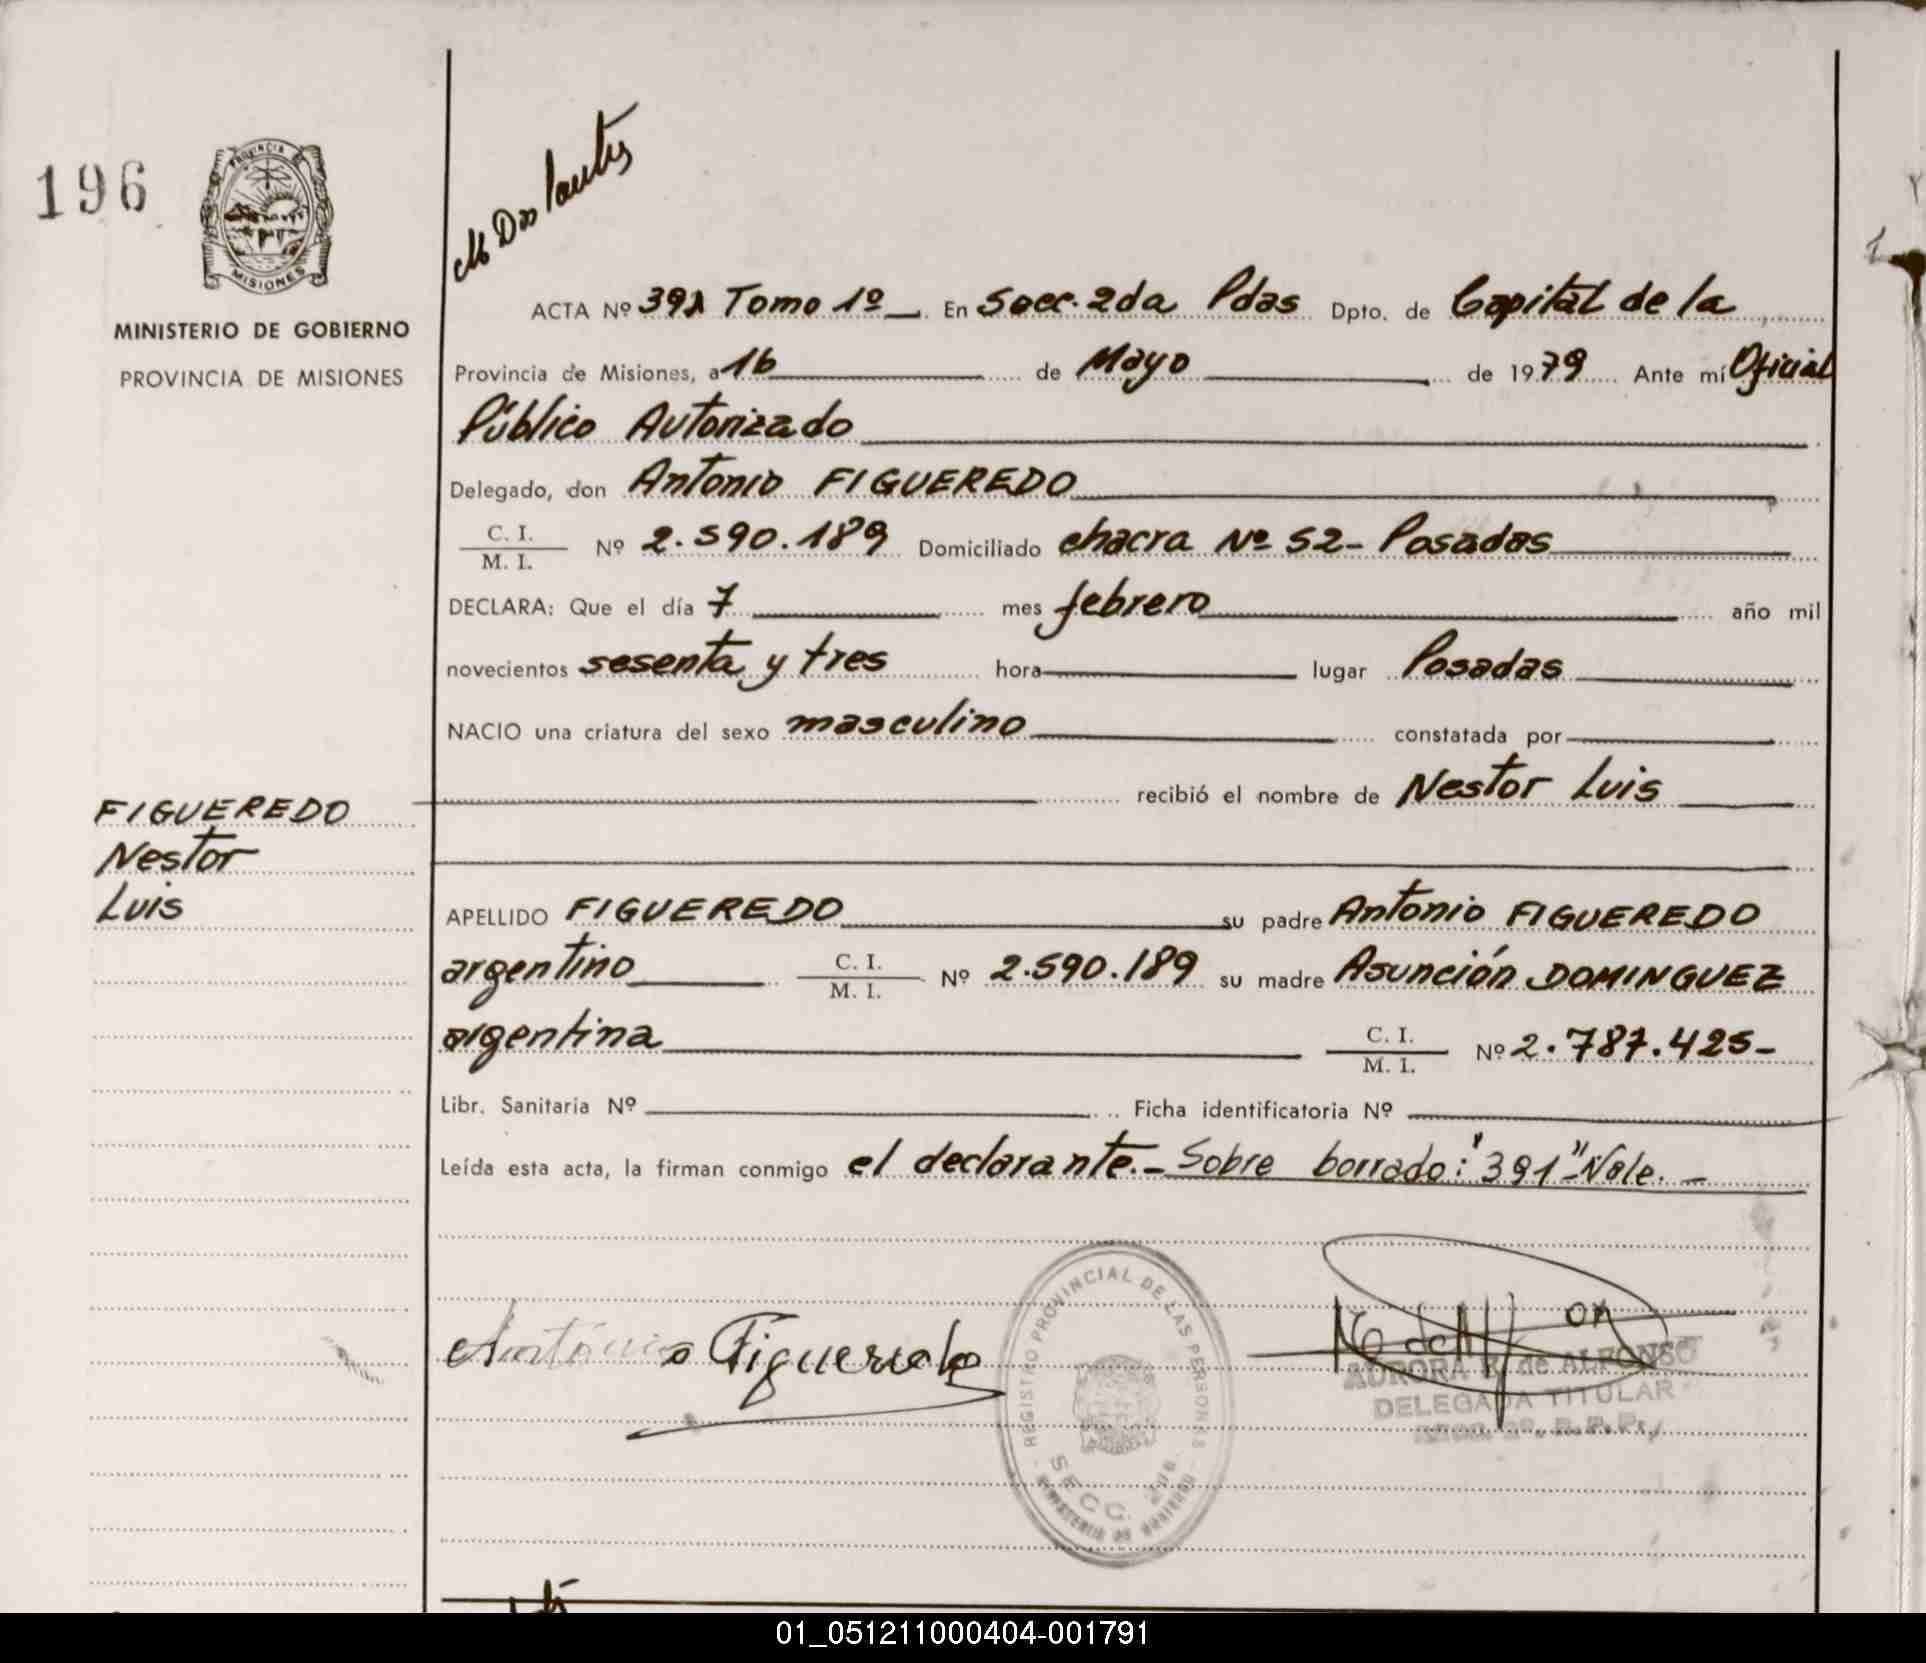 196
PROVINCIA DE
MISIONES
MINISTERIO DE GOBIERNO
PROVINCIA DE MISIONES
ACTA Nº 391 Tomo 1º En Secc. 2da Pdas Dpto. de Capital de la
Provincia de Misiones, a 16 de Mayo de 1979 Ante mí Oficial
Público Autorizado
Delegado, don Antonio FIGUEREDO
C. I.
M. I. Nº 2.590.189 Domiciliado chacra Nº 52- Posadas
DECLARA: Que el día 7 mes febrero año mil
novecientos sesenta y tres hora lugar Posadas
NACIO una criatura del sexo masculino constatada por
recibió el nombre de Nestor Luis
FIGUEREDO
Nestor
Luis
APELLIDO FIGUEREDO su padre Antonio FIGUEREDO
argentino C. I. M. I. Nº 2.590.189 su madre Asunción DOMINGUEZ
argentina C. I. M. I. Nº 2.787.425-
Libr. Sanitaria Nº Ficha identificatoria Nº
Leída esta acta, la firman conmigo el declarante.- Sobre borrado: "391" Vale.-
Antonio Figueredo
REGISTRO PROVINCIAL DE LAS PERSONAS
SECC. 2da
MINISTERIO DE GOBIERNO
AURORA de ALFONSO
DELEGADA TITULAR
01_051211000404-001791